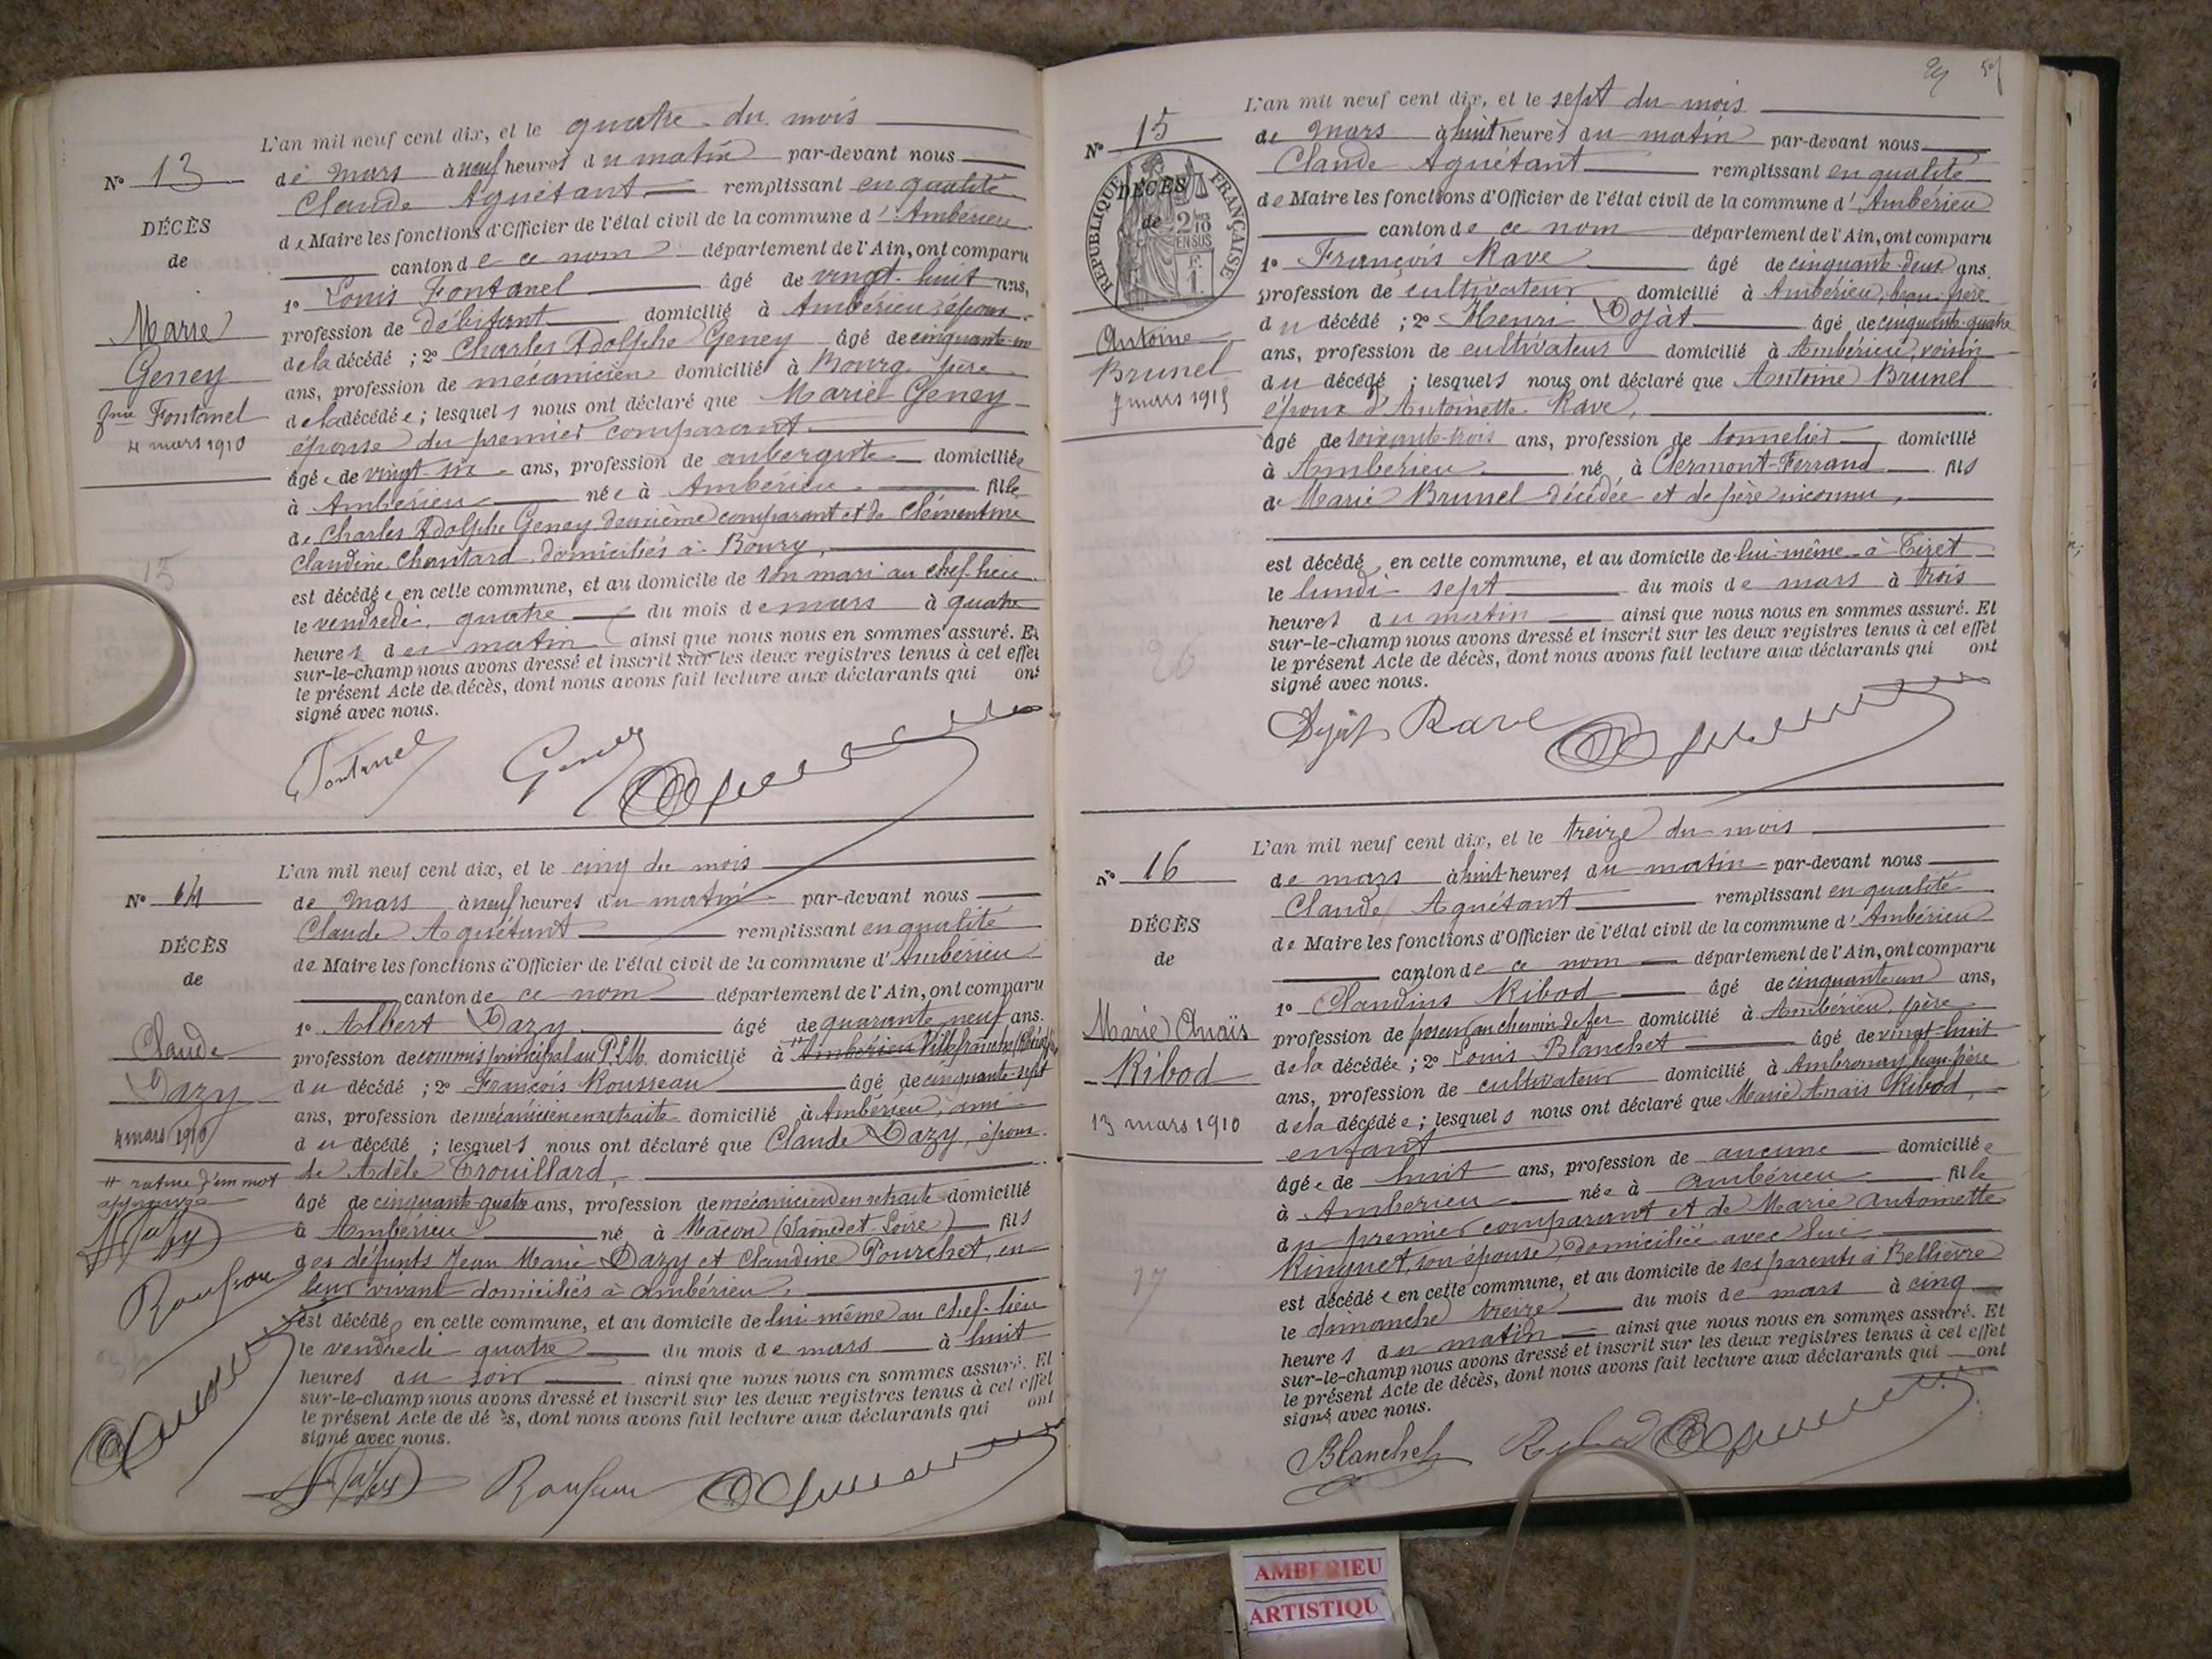 L'an mil neuf cent dix, et le quatre du mois
N° 13
de mars à neuf heures du matin par-devant nous
Claude Aguétant remplissant en qualité
DÉCÈS
de Maire les fonctions d'Officier de l'état civil de la commune d'Ambérieu
de
canton de ce nom département de l'Ain, ont comparu
1° Louis Fontanel âgé de vingt-huit ans,
Marie
profession de débitant domicilié à Ambérieu, époux
Geney
de la décédé ; 2° Charles Adolphe Geney âgé de cinquante-un
ans, profession de mécanicien domicilié à Bourg, père
fme Fontanel
de la décédée ; lesquels nous ont déclaré que Marie Geney
4 mars 1910
épouse du premier comparant
âgée de vingt-six ans, profession de aubergiste domiciliée
à Ambérieu née à Ambérieu fille
de Charles Adolphe Geney deuxième comparant et de Clémentine
Claudine domiciliés à Bourg,
15
est décédée en cette commune, et au domicile de son mari au chef-lieu
le vendredi quatre du mois de mars à quatre
heures du matin ainsi que nous nous en sommes assuré. Et
sur-le-champ nous avons dressé et inscrit sur les deux registres tenus à cet effet
le présent Acte de décès, dont nous avons fait lecture aux déclarants qui ont
signé avec nous.
Fontanel Geney
L'an mil neuf cent dix, et le cinq du mois
N° 14
de mars à neuf heures du matin par-devant nous
Claude Aguétant remplissant en qualité
DÉCÈS
de Maire les fonctions d'Officier de l'état civil de la commune d'Ambérieu
de
canton de ce nom département de l'Ain, ont comparu
1° Albert Dazy âgé de quarante neuf ans.
Claude
profession de commis principal au P.L.M. domicilié à # Ambérieu Villefranche (Rhône)
Dazy
du décédé ; 2° François Rousseau âgé de cinquante-sept
4 mars 1910
ans, profession de mécanicien en retraite domicilié à Ambérieu, ami
du décédé ; lesquels nous ont déclaré que Claude Dazy, époux
# rature d'un mot
de Adèle Trouillard,
approuvée
âgé de cinquante-quatre ans, profession de mécanicien en retraite domicilié
Dazy
à Ambérieu né à Mâcon (Saône et Loire) fils
des défunts Jean Marie Dazy et Claudine Pourchet, en
Rousseau
leur vivant domiciliés à Ambérieu,
est décédé en cette commune, et au domicile de lui-même au chef-lieu
le vendredi quatre du mois de mars à huit
heures du soir ainsi que nous nous en sommes assuré. Et
sur-le-champ nous avons dressé et inscrit sur les deux registres tenus à cet effet
le présent Acte de décès, dont nous avons fait lecture aux déclarants qui ont
signé avec nous.
Dazy Rousseau
L'an mil neuf cent dix, et le sept du mois
N° 15
de mars à huit heures du matin par-devant nous
Claude Aguétant remplissant en qualité
DÉCÈS
de
RÉPUBLIQUE FRANÇAISE
2/10 EN SUS
F. 1
de Maire les fonctions d'Officier de l'état civil de la commune d'Ambérieu
canton de ce nom département de l'Ain, ont comparu
1° François Rave âgé de cinquante-deux ans.
profession de cultivateur domicilié à Ambérieu, beau-frère
Antoine
du décédé ; 2° Henri Dojat âgé de cinquante-quatre
ans, profession de cultivateur domicilié à Ambérieu, voisin
Brunel
du décédé ; lesquels nous ont déclaré que Antoine Brunel
7 mars 1915
époux d'Antoinette Rave,
âgé de soixante-trois ans, profession de tonnelier domicilié
à Ambérieu né à Clermont-Ferrand fils
de Marie Brunel décédée et de père inconnu,
est décédé en cette commune, et au domicile de lui-même à Tiret
le lundi sept du mois de mars à trois
heures du matin ainsi que nous nous en sommes assuré. Et
sur-le-champ nous avons dressé et inscrit sur les deux registres tenus à cet effet
26
le présent Acte de décès, dont nous avons fait lecture aux déclarants qui ont
signé avec nous.
Dojat Rave
L'an mil neuf cent dix, et le treize du mois
N° 16
de mars à huit heures du matin par-devant nous
Claude Aguétant remplissant en qualité
DÉCÈS
de Maire les fonctions d'Officier de l'état civil de la commune d'Ambérieu
de
canton de ce nom département de l'Ain, ont comparu
1° Claudius Ribod âgé de cinquante-un ans,
Marie Anaïs
profession de poseur au chemin de fer domicilié à Ambérieu, père
Ribod
de la décédée ; 2° Louis Blanchet âgé de vingt-huit
ans, profession de cultivateur domicilié à Ambronay, beau-frère
13 mars 1910
de la décédée ; lesquels nous ont déclaré que Marie Anaïs Ribod,
enfant
âgée de huit ans, profession de aucune domiciliée
à Ambérieu née à Ambérieu fille
du premier comparant et de Marie Antoinette
son épouse, domiciliée avec lui
17
est décédée en cette commune, et au domicile de ses parents à Bellièvre
le dimanche treize du mois de mars à cinq
heures du matin ainsi que nous nous en sommes assuré. Et
sur-le-champ nous avons dressé et inscrit sur les deux registres tenus à cet effet
le présent Acte de décès, dont nous avons fait lecture aux déclarants qui ont
signé avec nous.
Blanchet Ribod
AMBERIEU
ARTISTIQU